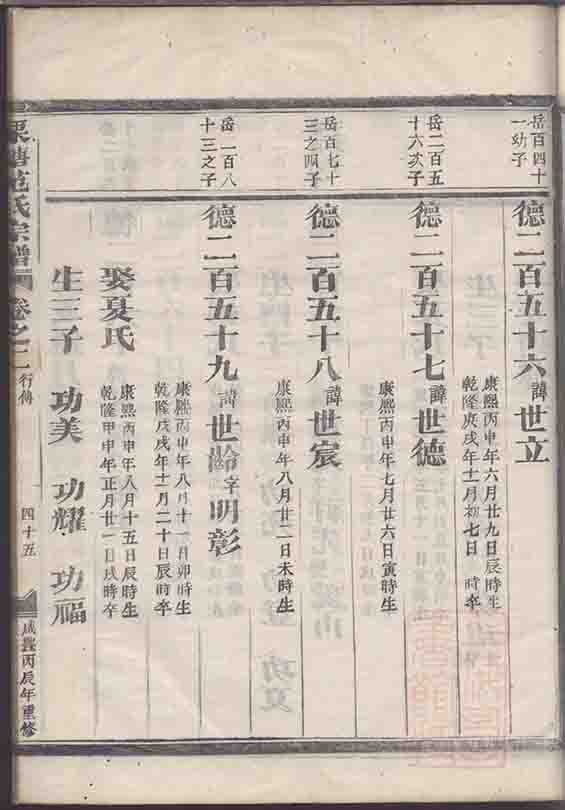 岳百四十
一幼子
德二百五十六諱世立
康熙丙申年六月廿九日辰時生
乾隆庚戌年十一月初七日　時卒
岳二百五
十六次子
德二百五十七諱世德
康熙丙申年七月廿六日寅時生
岳百七十
三之四子
德二百五十八諱世宸
康熙丙申年八月廿二日未時生
岳一百八
十三之子
德二百五十九諱世齡字明彰
康熙丙申年八月十一日卯時生
乾隆戊戌年十一月二十日辰時卒
娶夏氏
康熙丙申年八月十五日辰時生
乾隆甲申年正月廿一日戌時卒
生三子　功美　功耀　功福
范氏宗譜
卷之二
行傳
四十五
咸豐丙辰年重修